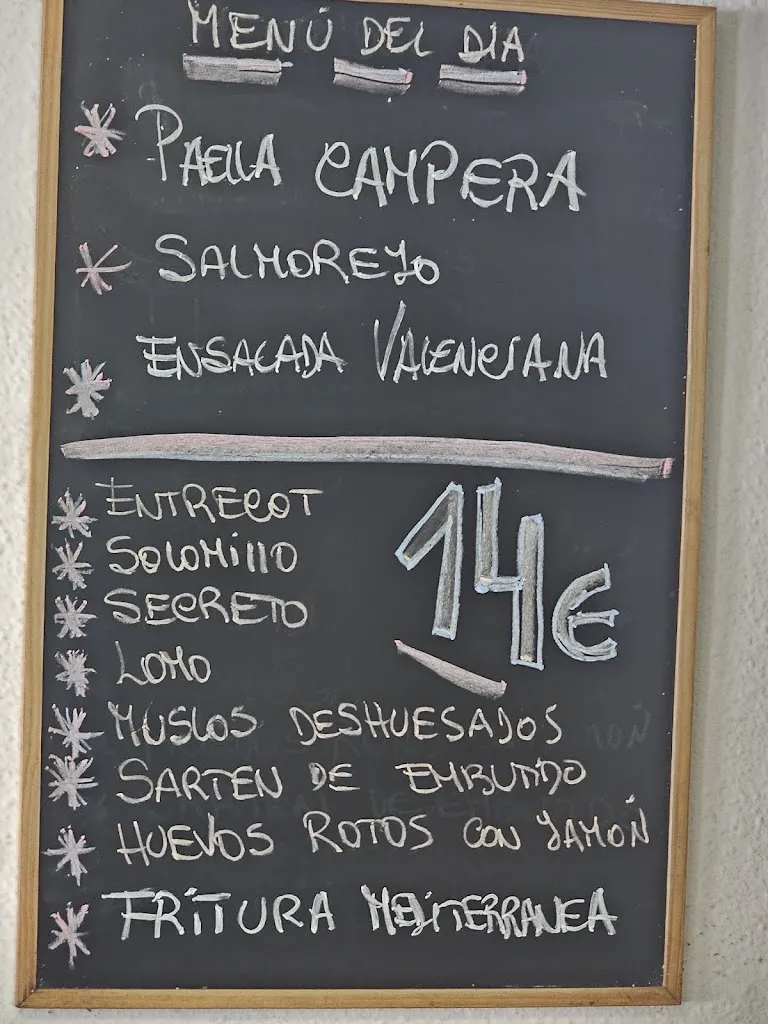 MENÚ DEL DIA
* PAELLA CAMPERA
* SALMOREJO
* ENSALADA VALENCIANA
* ENTRECOT
14€
* SOLOMILLO
* SECRETO
* LOMO
* MUSLOS DESHUESADOS
* SARTEN DE EMBUTIDO
* HUEVOS ROTOS CON JAMOÑ
* FRITURA MEDITERRANEA